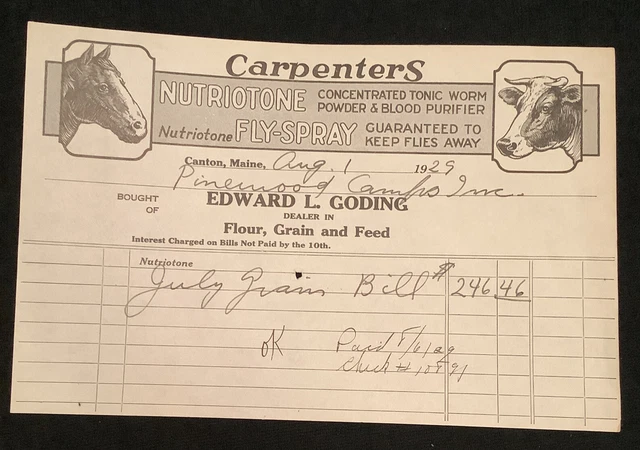 Carpenters
NUTRIOTONE CONCENTRATED TONIC WORM POWDER & BLOOD PURIFIER
Nutriotone FLY-SPRAY GUARANTEED TO KEEP FLIES AWAY
Canton, Maine, Aug. 1 1929
Pinewood Camps Inc.
BOUGHT OF
EDWARD L. GODING
DEALER IN
Flour, Grain and Feed
Interest Charged on Bills Not Paid by the 10th.
Nutriotone
July Grain Bill $ 246 46
OK Paid 8/6/29
Check #